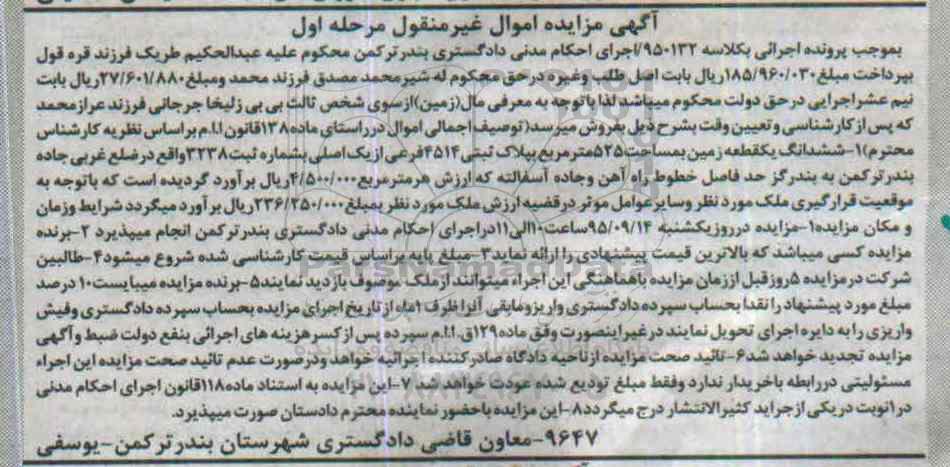 آگهی مزایده اموال غیرمنقول مرحله اول
بموجب پرونده اجرائی بکلاسه ۹۵۰۱۳۲/اجرای احکام مدنی دادگستری بندرترکمن محکوم علیه عبدالحکیم طریک فرزند قره قول
بپرداخت مبلغ ۱۸۵/۹۶۰/۰۳۰ریال بابت اصل طلب وغیره درحق محکوم له شیرمحمد مصدق فرزند محمد ومبلغ ۲۷/۶۰۱/۸۸۰ریال بابت
نیم عشراجرایی درحق دولت محکوم میباشد لذا باتوجه به معرفی مال(زمین)ازسوی شخص ثالث بی بی زلیخا جرجانی فرزند عرازمحمد
که پس ازکارشناسی وتعیین وقت بشرح ذیل بفروش میرسد(توصیف اجمالی اموال درراستای ماده۱۳۸قانون ا.ا.م براساس نظریه کارشناس
محترم)۱-ششدانگ یکقطعه زمین بمساحت۵۲۵مترمربع بپلاک ثبتی۴۵۱۴فرعی ازیک اصلی بشماره ثبت۳۲۳۸واقع درضلع غربی جاده
بندرترکمن به بندرگز حد فاصل خطوط راه آهن وجاده آسفالته که ارزش هرمترمربع۴/۵۰۰/۰۰۰ریال برآورد گردیده است که باتوجه به
موقعیت قرارگیری ملک مورد نظر وسایرعوامل موثر درقضیه ارزش ملک مورد نظر بمبلغ۲۳۶/۲۵۰/۰۰۰ریال برآورد میگردد شرایط وزمان
و مکان مزایده۱-مزایده درروزیکشنبه ۹۵/۰۹/۱۴ساعت۱۰الی۱۱دراجرای احکام مدنی دادگستری بندرترکمن انجام میپذیرد ۲-برنده
مزایده کسی میباشد که بالاترین قیمت پیشنهادی را ارائه نماید۳-مبلغ پایه براساس قیمت کارشناسی شده شروع میشود۴-طالبین
شرکت درمزایده ۵روزقبل اززمان مزایده باهماهنگی این اجراء میتوانند ازملک موصوف بازدید نمایند۵-برنده مزایده میبایست۱۰درصد
مبلغ مورد پیشنهاد را نقدا بحساب سپرده دادگستری واریزومابقی آنراظرف۱ماه ازتاریخ اجرای مزایده بحساب سپرده دادگستری وفیش
واریزی را به دایره اجرای تحویل نمایند درغیراینصورت وفق ماده۱۲۹ق.ا.ا.م سپرده پس ازکسرهزینه های اجرائی بنفع دولت ضبط وآگهی
مزایده تجدید خواهد شد۶-تائید صحت مزایده ازناحیه دادگاه صادرکننده اجرائیه خواهد ودرصورت عدم تائید صحت مزایده این اجراء
مسئولیتی دررابطه باخریدار ندارد وفقط مبلغ تودیع شده عودت خواهد شد ۷-این مزایده به استناد ماده۱۱۸قانون اجرای احکام مدنی
در۱نوبت دریکی ازجراید کثیرالانتشار درج میگردد۸-این مزایده باحضورنماینده محترم دادستان صورت میپذیرد.
۹۶۴۷-معاون قاضی دادگستری شهرستان بندرترکمن-یوسفی
ParsNamadData